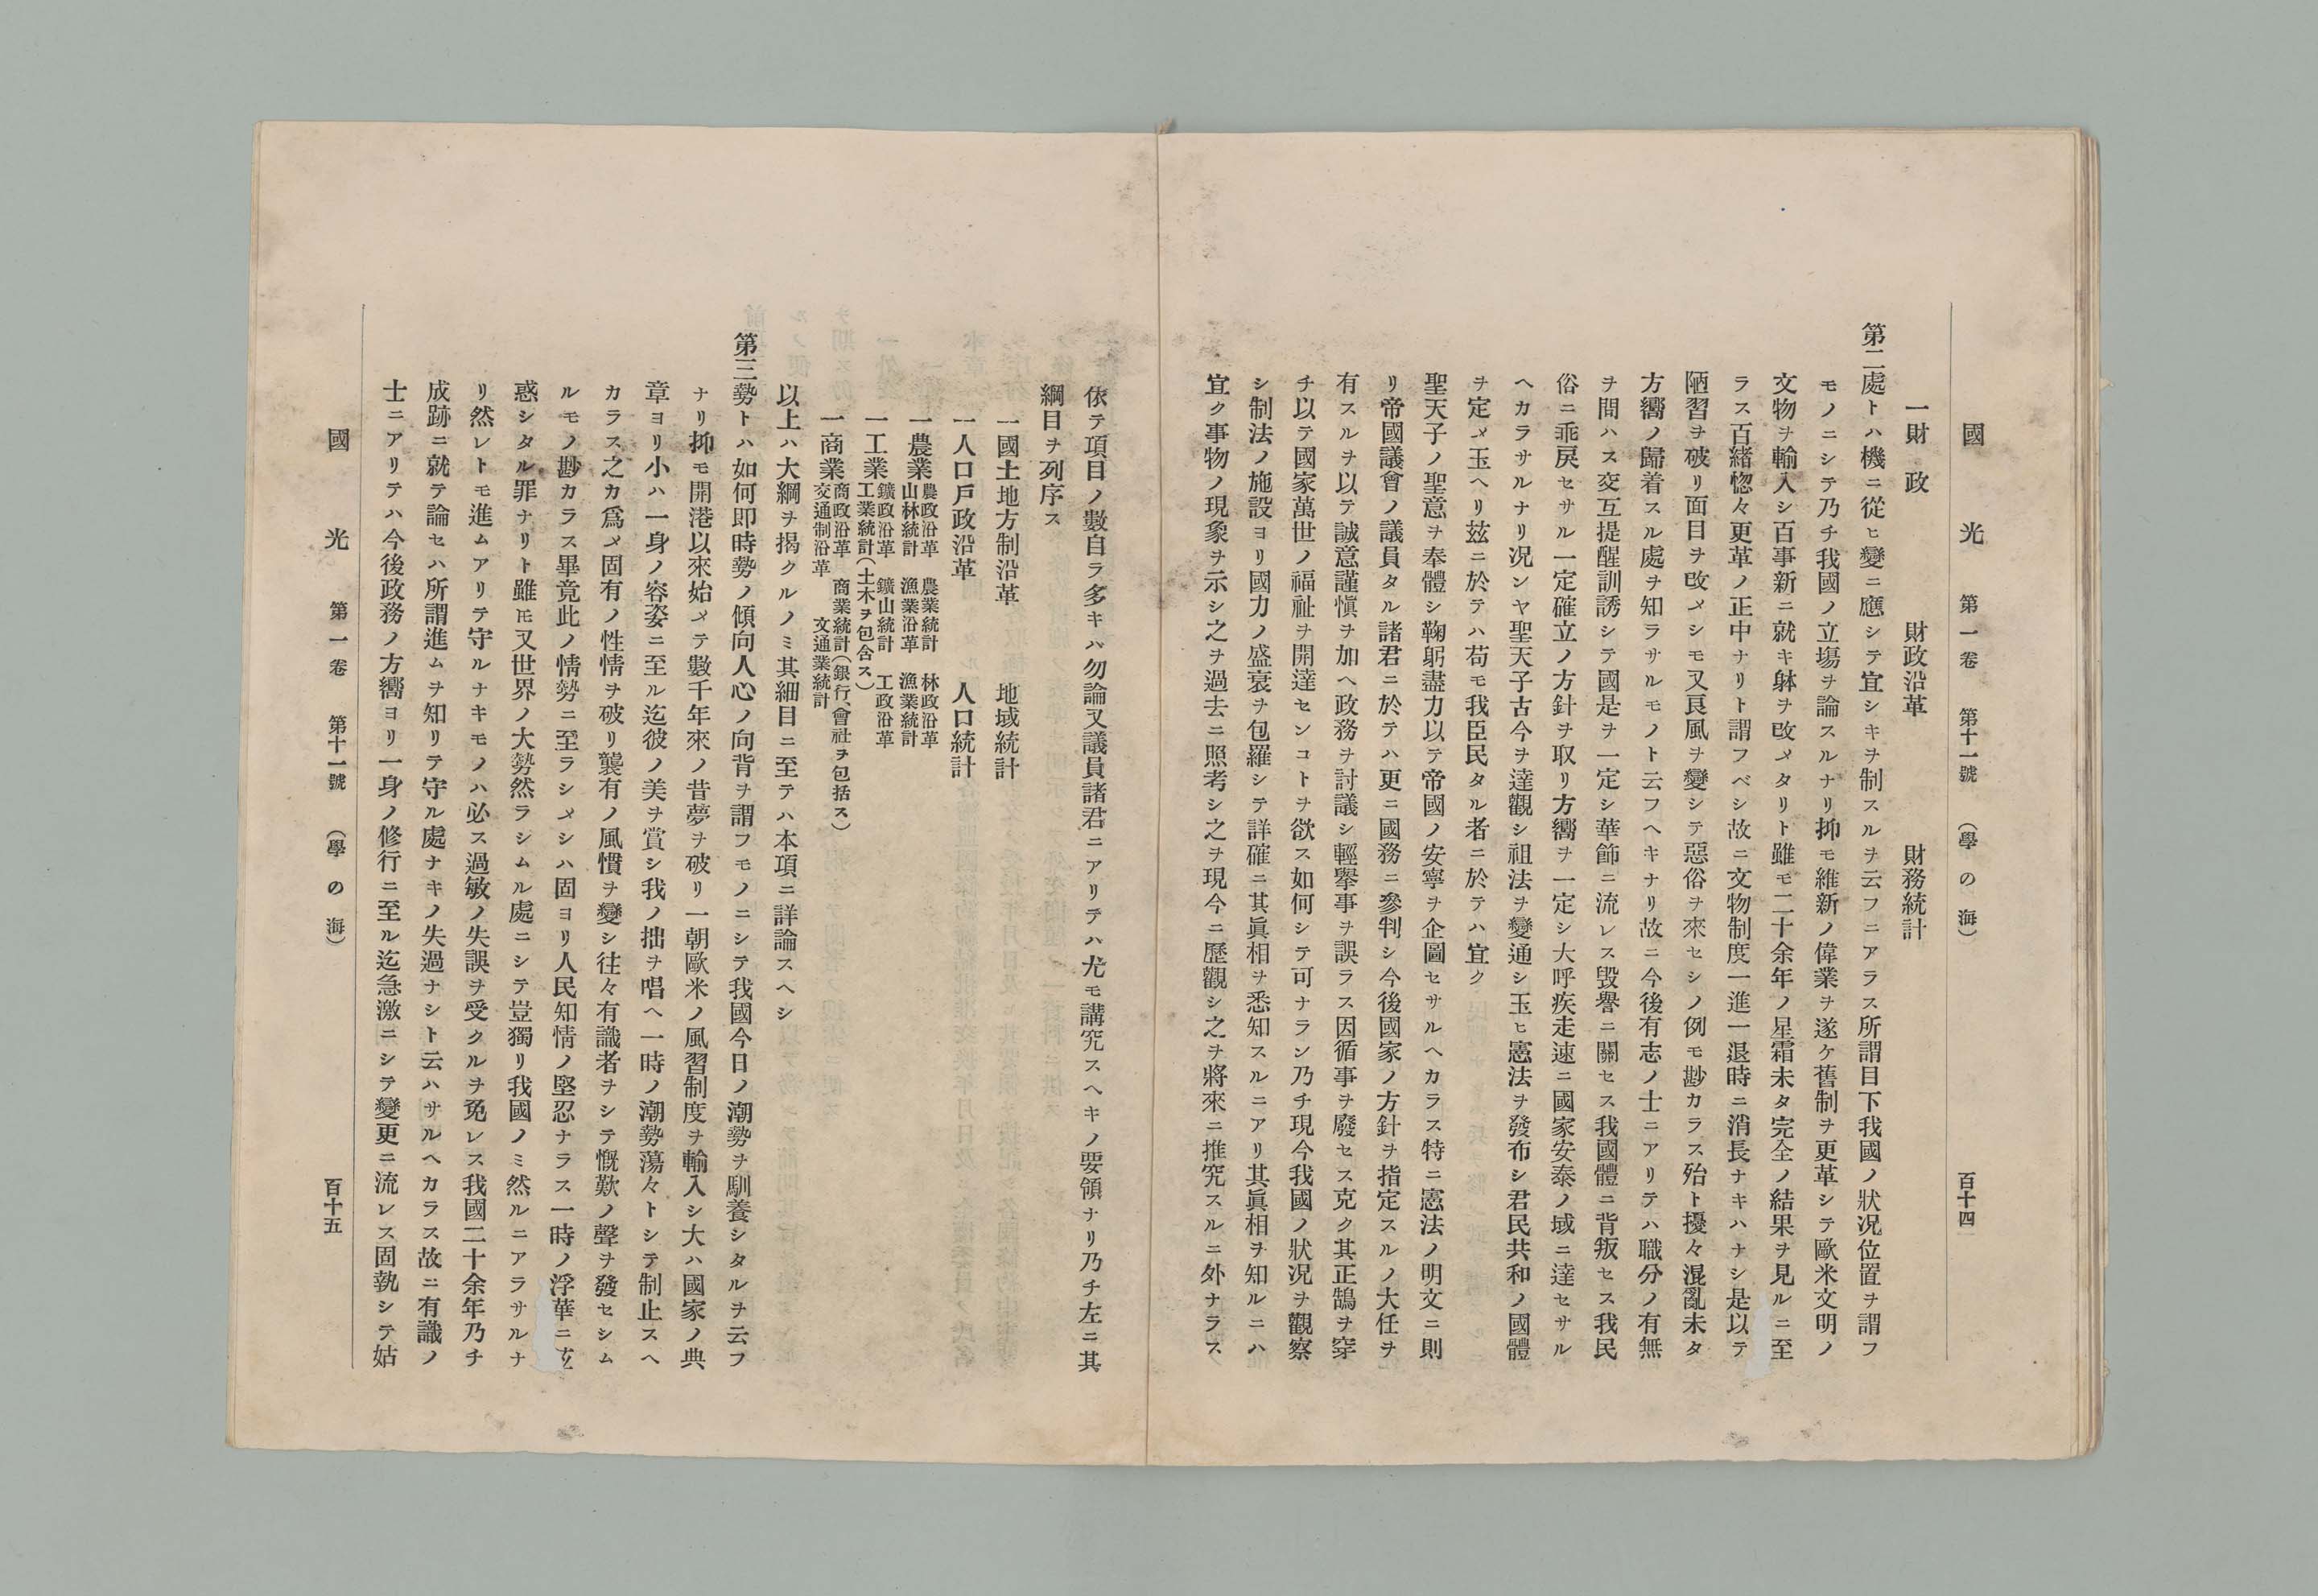 國光 第一卷 第十一號 (學の海) 百十四
一財政 財政沿革 財務統計
第二處トハ機ニ從ヒ變ニ應シテ宜シキヲ制スルヲ云フニアラス所謂目下我國ノ狀况位置ヲ謂フ
モノニシテ乃チ我國ノ立塲ヲ論スルナリ抑モ維新ノ偉業ヲ遂ケ舊制ヲ更革シテ歐米文明ノ
文物ヲ輸入シ百事新ニ就キ躰ヲ改メタリト雖モ二十余年ノ星霜未タ完全ノ結果ヲ見ルニ至
ラス百緒愡々更革ノ正中ナリト謂フベシ故ニ文物制度一進一退時ニ消長ナキハナシ是以テ
陋習ヲ破リ面目ヲ改メシモ又良風ヲ變シテ惡俗ヲ來セシノ例モ尠カラス殆ト擾々混亂未タ
方嚮ノ歸着スル處ヲ知ラサルモノト云フヘキナリ故ニ今後有志ノ士ニアリテハ職分ノ有無
ヲ問ハス交互提醒訓誘シテ國是ヲ一定シ華節ニ流レス毀譽ニ關セス我國體ニ背叛セス我民
俗ニ乖戾セサル一定確立ノ方針ヲ取リ方嚮ヲ一定シ大呼疾走速ニ國家安泰ノ域ニ達セサル
ヘカラサルナリ况ンヤ聖天子古今ヲ達觀シ祖法ヲ變通シ玉ヒ憲法ヲ發布シ君民共和ノ國體
ヲ定メ玉ヘリ玆ニ於テハ苟モ我臣民タル者ニ於テハ宜ク
聖天子ノ聖意ヲ奉體シ鞠躬盡力以テ帝國ノ安寧ヲ企圖セサルヘカラス特ニ憲法ノ明文ニ則
リ帝國議會ノ議員タル諸君ニ於テハ更ニ國務ニ參判シ今後國家ノ方針ヲ指定スルノ大任ヲ
有スルヲ以テ誠意謹愼ヲ加ヘ政務ヲ討議シ輕擧事ヲ誤ラス因循事ヲ廢セス克ク其正鵠ヲ穿
チ以テ國家萬世ノ福祉ヲ開達センコトヲ欲ス如何シテ可ナラン乃チ現今我國ノ狀况ヲ觀察
シ制法ノ施設ヨリ國力ノ盛衰ヲ包羅シテ詳確ニ其眞相ヲ悉知スルニアリ其眞相ヲ知ルニハ
宜ク事物ノ現象ヲ示シ之ヲ過去ニ照考シ之ヲ現今ニ歷觀シ之ヲ將來ニ推究スルニ外ナラス
依テ項目ノ數自ラ多キハ勿論又議員諸君ニアリテハ尤モ講究スヘキノ要領ナリ乃チ左ニ其
綱目ヲ列序ス
一國土地方制沿革 地域統計
一人口戶政沿革 人口統計
一農業 農政沿革 農業統計 林政沿革
山林統計 漁業沿革 漁業統計
一工業 鑛政沿革 鑛山統計 工政沿革
工業統計(土木ヲ包含ス)
一商業 商政沿革 商業統計(銀行、會社ヲ包括ス)
交通制沿革 交通業統計
以上ハ大綱ヲ揭クルノミ其細目ニ至テハ本項ニ詳論スヘシ
第三勢トハ如何即時勢ノ傾向人心ノ向背ヲ謂フモノニシテ我國今日ノ潮勢ヲ馴養シタルヲ云フ
ナリ抑モ開港以來始メテ數千年來ノ昔夢ヲ破リ一朝歐米ノ風習制度ヲ輸入シ大ハ國家ノ典
章ヨリ小ハ一身ノ容姿ニ至ル迄彼ノ美ヲ賞シ我ノ拙ヲ唱ヘ一時ノ潮勢蕩々トシテ制止スヘ
カラス之カ爲メ固有ノ性情ヲ破リ襲有ノ風慣ヲ變シ往々有識者ヲシテ慨歎ノ聲ヲ發セシム
ルモノ尠カラス畢竟此ノ情勢ニ至ラシメシハ固ヨリ人民知情ノ堅忍ナラス一時ノ浮華ニ眩
惑シタル罪ナリト雖𪜈又世界ノ大勢然ラシムル處ニシテ豈獨リ我國ノミ然ルニアラサルナ
リ然レトモ進ムアリテ守ルナキモノハ必ス過敏ノ失誤ヲ受クルヲ免レス我國二十余年乃チ
成跡ニ就テ論セハ所謂進ムヲ知リテ守ル處ナキノ失過ナシト云ハサルヘカラス故ニ有識ノ
士ニアリテハ今後政務ノ方嚮ヨリ一身ノ修行ニ至ル迄急激ニシテ變更ニ流レス固執シテ姑
國光 第一卷 第十一號 (學の海) 百十五